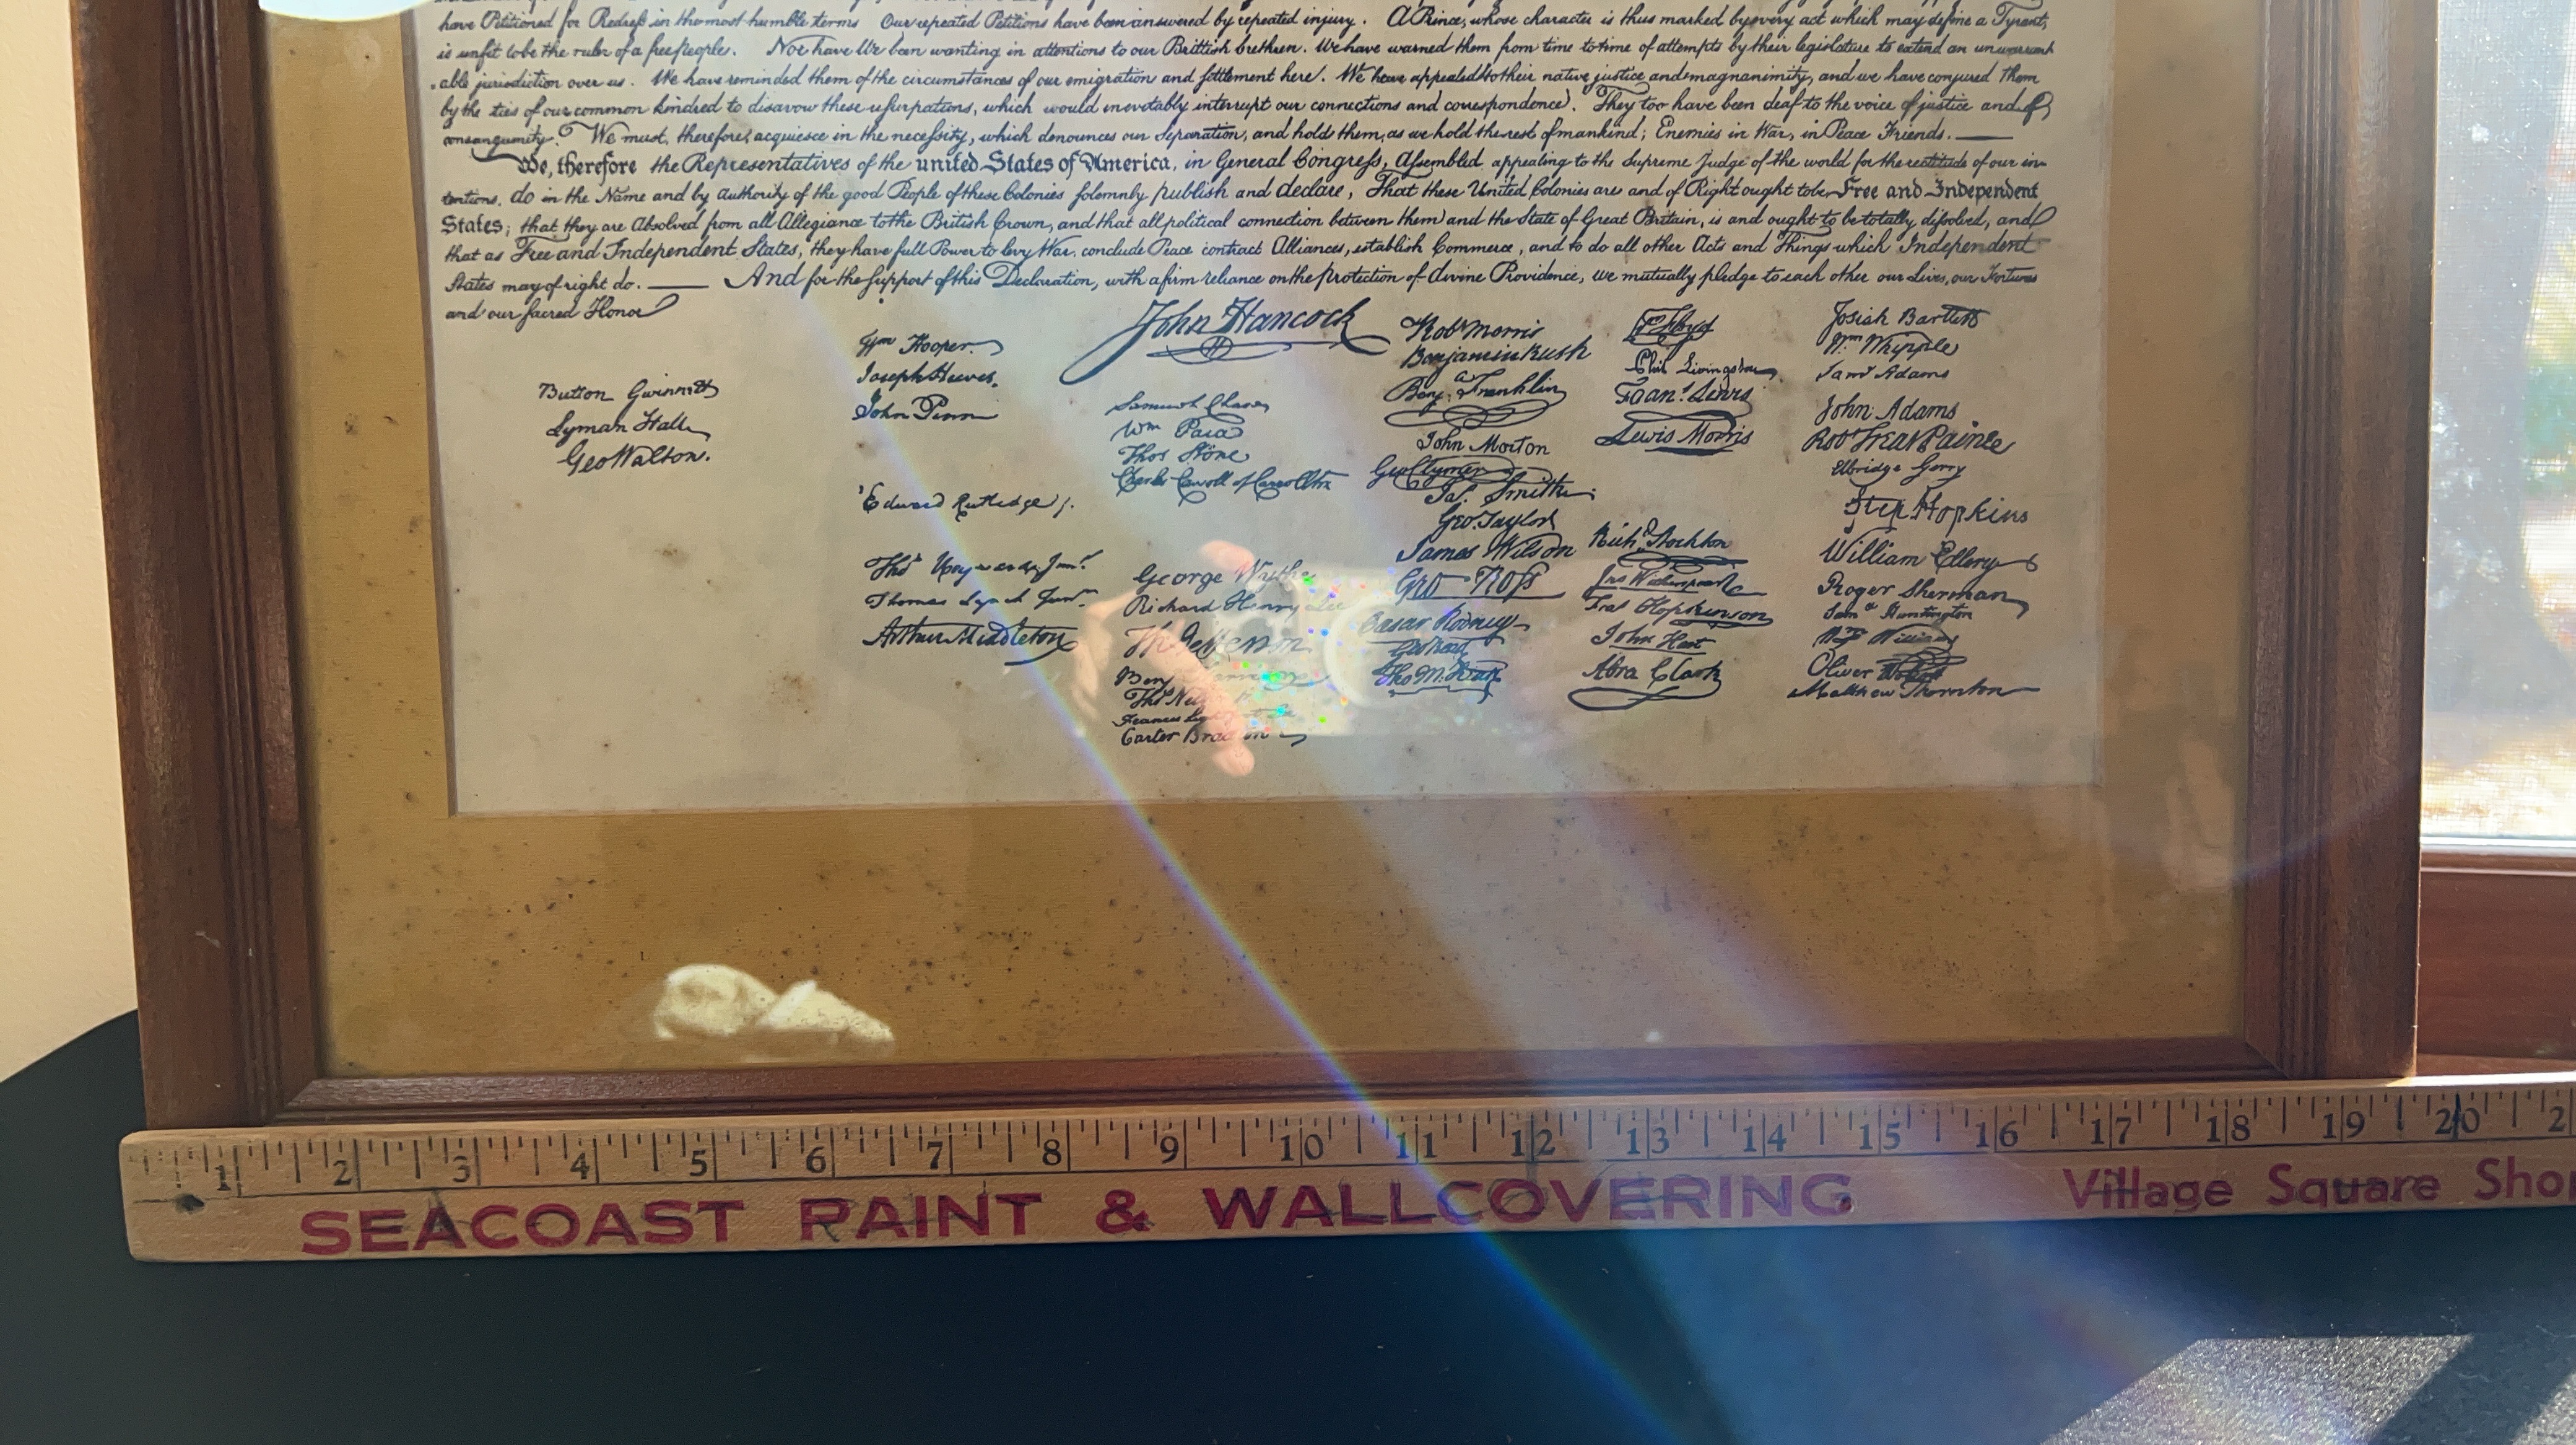 have Petitioned for Redress in the most humble terms Our repeated Petitions have been answered by repeated injury. A Prince, whose character is thus marked by every act which may define a Tyrant,
is unfit to be the ruler of a free people. Nor have We been wanting in attentions to our Brittish brethren. We have warned them from time to time of attempts by their legislature to extend an unwarrant
-able jurisdiction over us. We have reminded them of the circumstances of our emigration and settlement here. We have appealed to their native justice and magnanimity, and we have conjured them
by the ties of our common kindred to disavow these usurpations, which would inevitably interrupt our connections and correspondence. They too have been deaf to the voice of justice and of
consanguinity. We must, therefore, acquiesce in the necessity, which denounces our Separation, and hold them, as we hold the rest of mankind; Enemies in War, in Peace Friends.
We, therefore the Representatives of the united States of America, in General Congress, Assembled appealing to the Supreme Judge of the world for the rectitude of our in-
tentions, do in the Name and by Authority of the good People of these Colonies solemnly publish and declare, That these United Colonies are and of Right ought to be Free and Independent
States; that they are Absolved from all Allegiance to the British Crown, and that all political connection between them and the State of Great Britain, is and ought to be totally dissolved, and
that as Free and Independent States, they have full Power to levy War, conclude Peace contract Alliances, establish Commerce, and to do all other Acts and Things which Independent
States may of right do. And for the support of this Declaration, with a firm reliance on the protection of divine Providence, we mutually pledge to each other our Lives, our Fortunes
and our sacred Honor
Button Gwinnett
Lyman Hall
Geo Walton.
Wm Hooper.
Joseph Hewes,
John Penn
Edward Rutledge /.
Thos Heyward Junr.
Thomas Lynch Junr.
Arthur Middleton
John Hancock
Samuel Chase
Wm Paca
Thos Stone
Charles Carroll of Carrollton
George Wythe
Richard Henry Lee
Th Jefferson
Benj Harrison
Thos Nelson jr
Francis Lightfoot Lee
Carter Braxton
Robt Morris
Benjamin Rush
Benj. Franklin
John Morton
Geo Clymer
Jas. Smith
Geo. Taylor
James Wilson
Geo Ross
Caesar Rodney
Geo Read
Tho M. Kean
Wm Floyd
Phil. Livingston
Frans. Lewis
Lewis Morris
Richd. Stockton
Jno Witherspoon
Fras Hopkinson
John Hart
Abra Clark
Josiah Bartlett
Wm Whipple
Saml Adams
John Adams
Robt Treat Paine
Elbridge Gerry
Step. Hopkins
William Ellery
Roger Sherman
Saml Huntington
Wm Williams
Oliver Wolcott
Matthew Thornton
1 2 3 4 5 6 7 8 9 10 11 12 13 14 15 16 17 18 19 20 2
SEACOAST PAINT & WALLCOVERING Village Square Sho